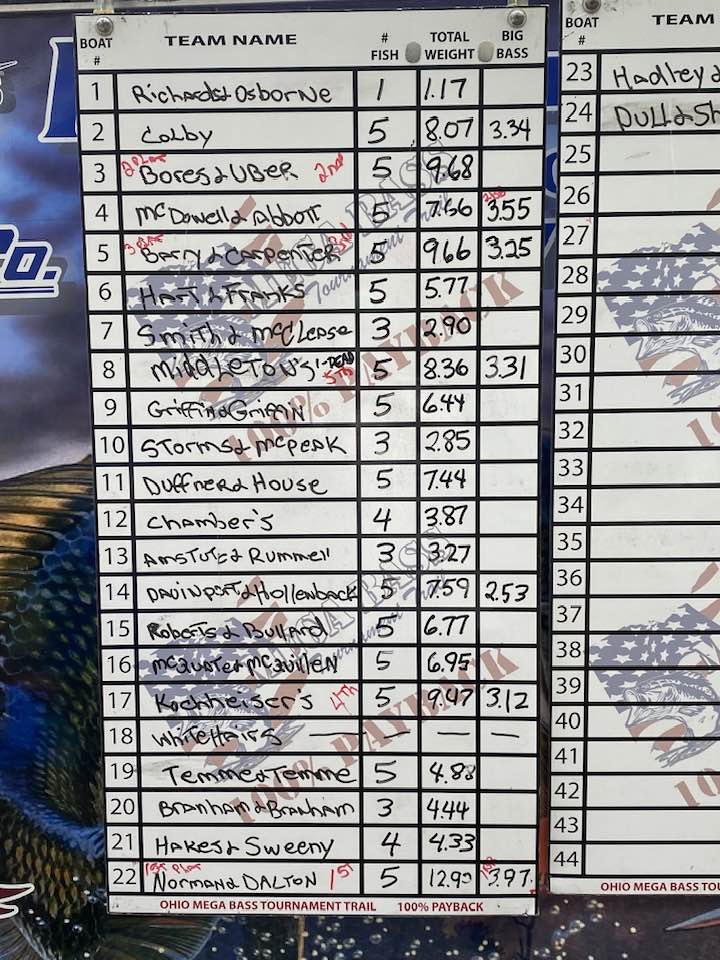 BOAT # TEAM NAME # FISH TOTAL WEIGHT BIG BASS
1 Richards & Osborne 1 1.17
2 Colby 5 8.07 3.34
3 Bores & UBER 2nd 5 9.68
4 McDowell & Abbott 5 7.56 3.55
5 Barry & Carpenter 3rd 5 9.66 3.25
6 Hart & Franks 5 5.77
7 Smith & McClease 3 2.90
8 Middleton's 1-DEAD 5TH 5 8.36 3.31
9 Griffin & Griffin 5 6.44
10 Storms & McPeak 3 2.85
11 Duffner & House 5 7.44
12 Chamber's 4 3.87
13 Amstuts & Rummell 3 3.27
14 Davinport & Hollenback 5 7.59 2.53
15 Roberts & Bullard 5 6.77
16 McQuate & McQuillen 5 6.95
17 Kochheiser's 4TH 5 9.47 3.12
18 WhiteHairs — — — —
19 Temme & Temme 5 4.88
20 Branham & Branham 3 4.44
21 Hakes & Sweeny 4 4.33
22 Norman & DALTON 1ST 5 3.97
OHIO MEGA BASS TOURNAMENT TRAIL 100% PAYBACK
BOAT # TEAM
23 Hadley &
24 DULL & Sh
25
26
27
28
29
30
31
32
33
34
35
36
37
38
39
40
41
42
43
44
OHIO MEGA BASS TOU
Co.
MEGA BASS
Tournament Trail
100% PAYBACK
MEGA BASS
Tournament Trail
100% PAYBACK